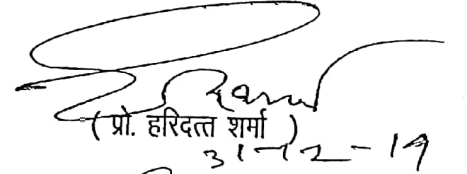 (प्रो. हरिदत्त शर्मा )
31-12-19